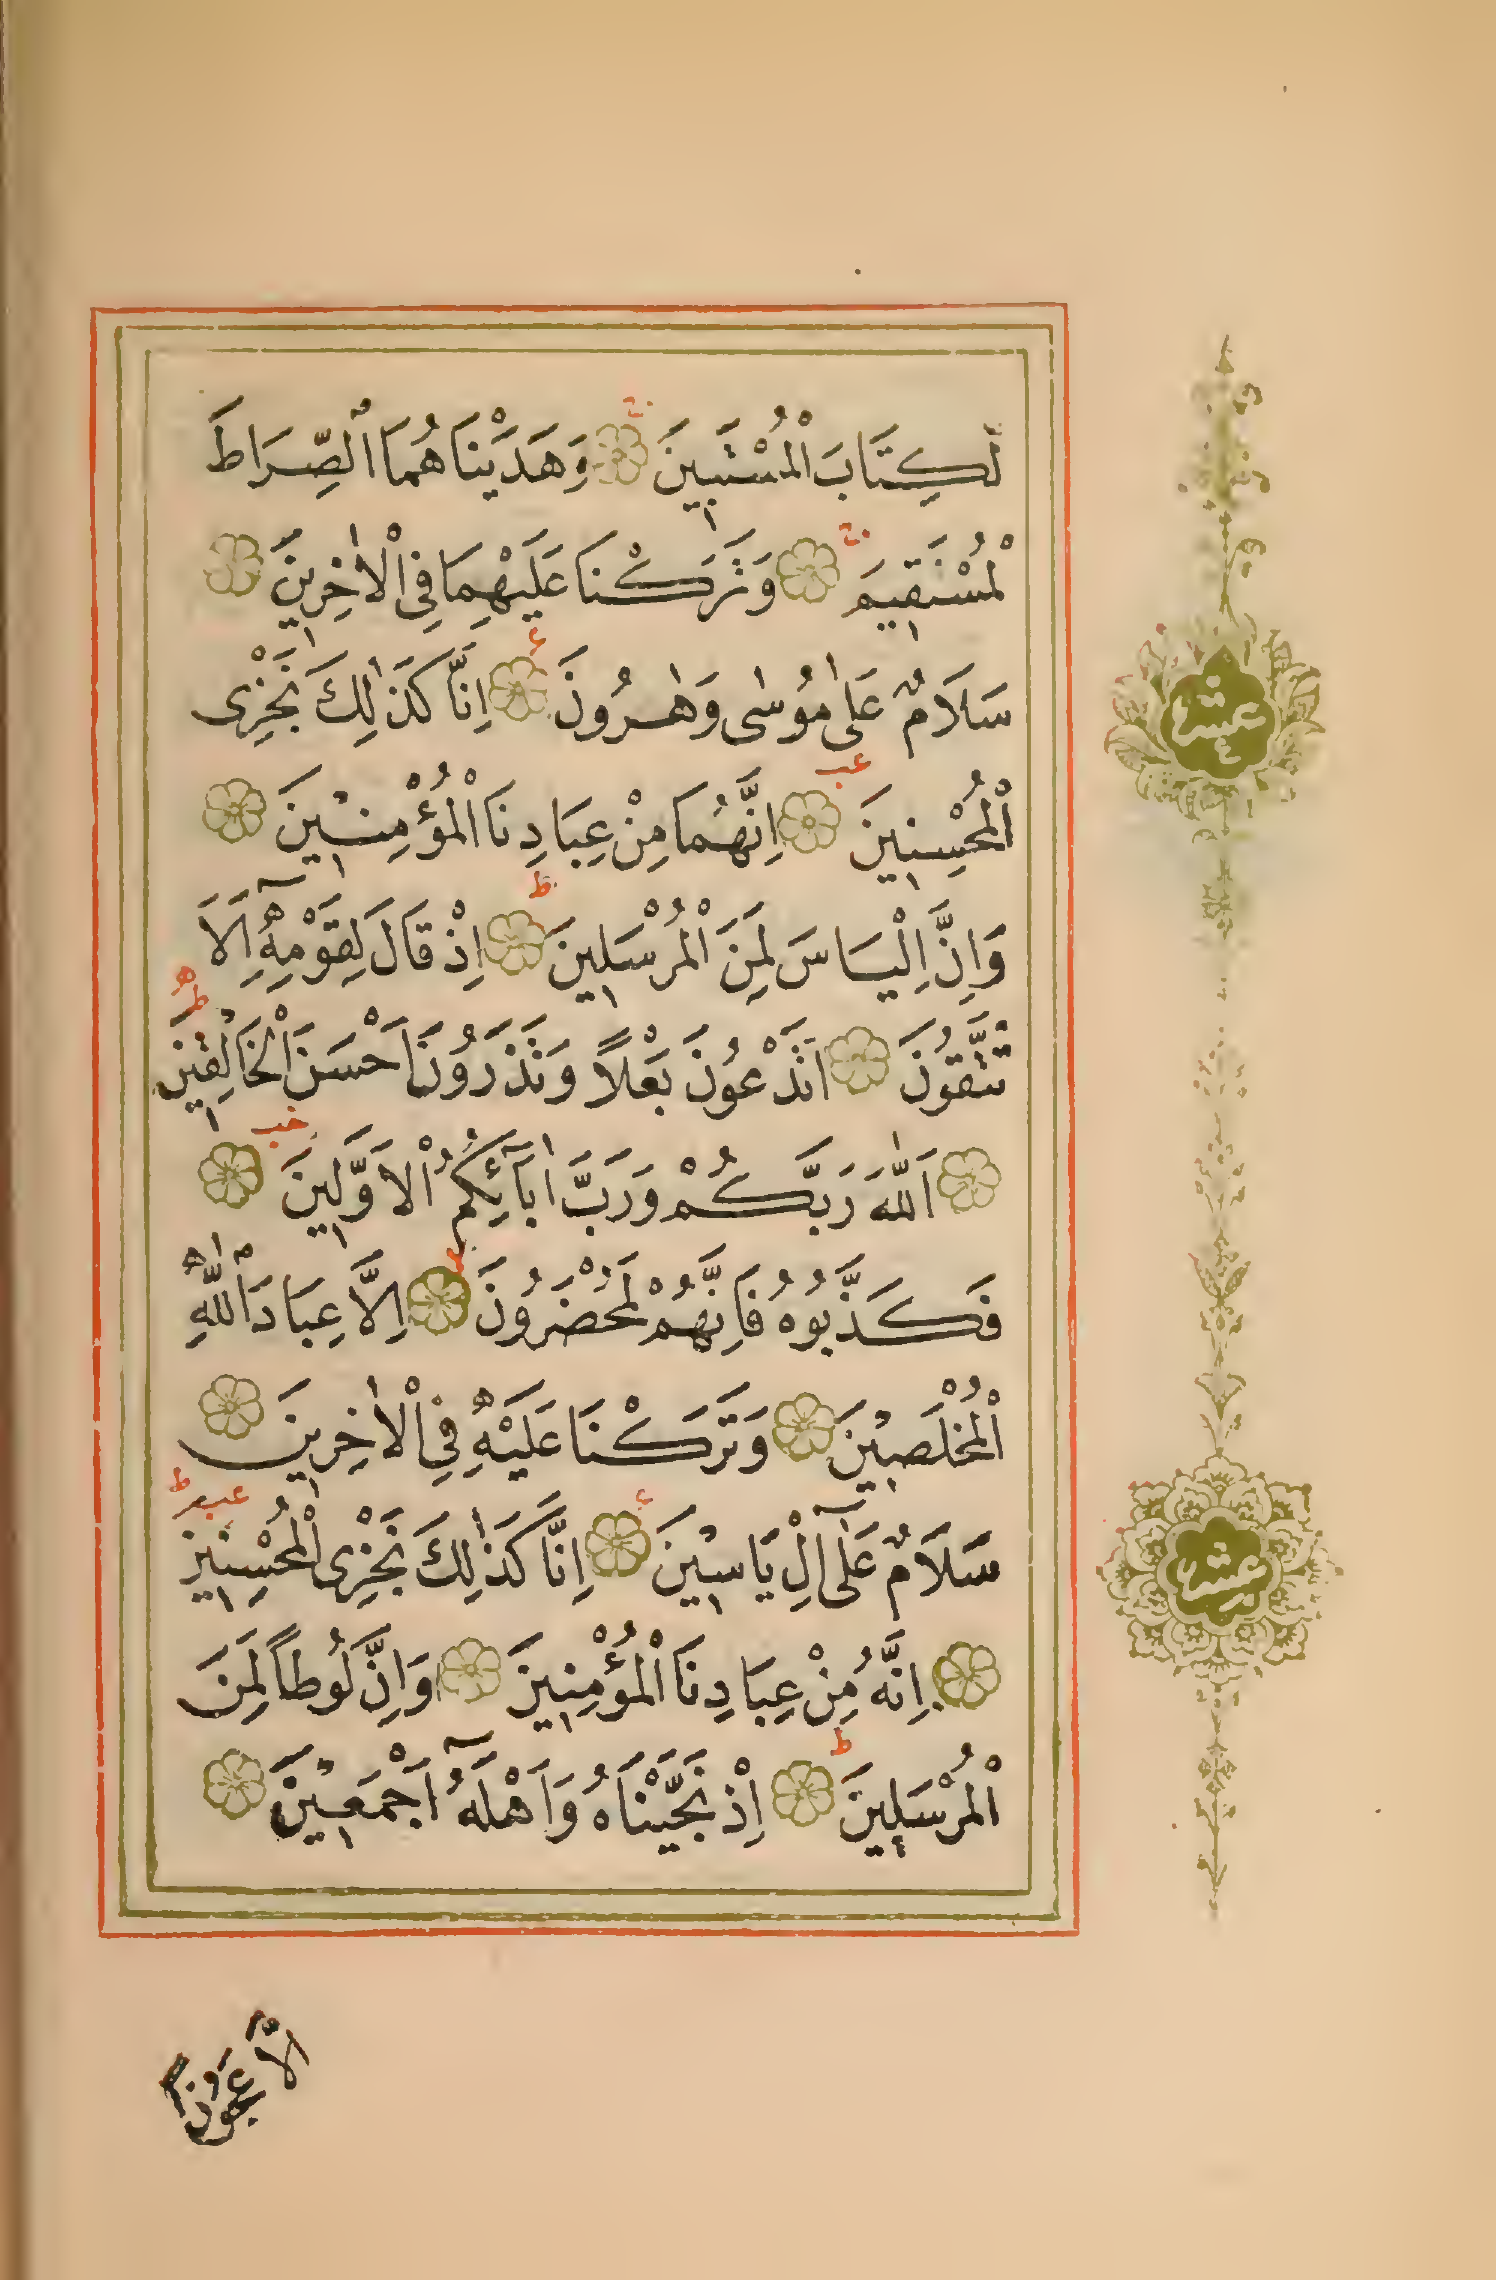 لْكِتَابَ الْمُسْتَبِينَ وَهَدَيْنَاهُمَا الصِّرَاطَ
لْمُسْتَقِيمَ وَتَرَكْنَا عَلَيْهِمَا فِى الْاٰخِرِينَ
سَلَامٌ عَلٰى مُوسٰى وَهٰرُونَ اِنَّا كَذٰلِكَ نَجْزِى
الْمُحْسِنِينَ اِنَّهُمَا مِنْ عِبَادِنَا الْمُؤْمِنِينَ
وَاِنَّ اِلْيَاسَ لَمِنَ الْمُرْسَلِينَ اِذْ قَالَ لِقَوْمِهٖٓ اَلَا
تَتَّقُونَ اَتَدْعُونَ بَعْلًا وَتَذَرُونَ اَحْسَنَ الْخَالِقِينَ
اَللّٰهَ رَبَّكُمْ وَرَبَّ اٰبَآئِكُمُ الْاَوَّلِينَ
فَكَذَّبُوهُ فَاِنَّهُمْ لَمُحْضَرُونَ اِلَّا عِبَادَ اللّٰهِ
الْمُخْلَصِينَ وَتَرَكْنَا عَلَيْهِ فِى الْاٰخِرِينَ
سَلَامٌ عَلٰٓى اٰلِ يَاسِينَ اِنَّا كَذٰلِكَ نَجْزِى الْمُحْسِنِينَ
اِنَّهُ مِنْ عِبَادِنَا الْمُؤْمِنِينَ وَاِنَّ لُوطًا لَمِنَ
الْمُرْسَلِينَ اِذْ نَجَّيْنَاهُ وَاَهْلَهُٓ اَجْمَعِينَ
عشر
عشر
اِلَّا عَجُوزًا